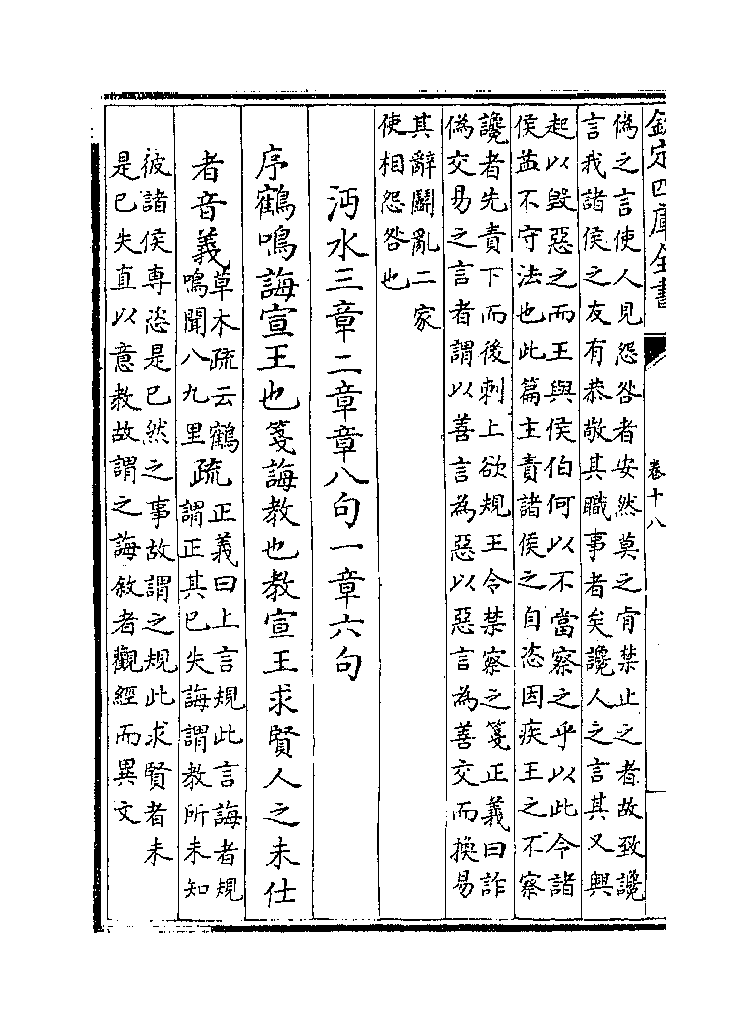 欽定四庫全書
卷十八
偽之言使人見怨咎者安然莫之肯禁止之者故致讒
言我諸侯之友有恭敬其職事者矣讒人之言其又興
起以毀惡之而王與侯伯何以不當察之乎以此令諸
侯益不守法也此篇主責諸侯之自恣因疾王之不察
讒者先責下而後刺上欲規王令禁察之箋正義曰詐
偽交易之言者謂以善言為惡以惡言為善交而換易
其辭鬭亂二家
使相怨咎也
沔水三章二章章八句一章六句
序鶴鳴誨宣王也箋誨教也教宣王求賢人之未仕
者音義草木疏云鶴鳴聞八九里疏正義曰上言規此言誨者規謂正其已失誨謂教所未知
彼諸侯專恣是已然之事故謂之規此求賢者未
是已失直以意教故謂之誨敘者觀經而異文